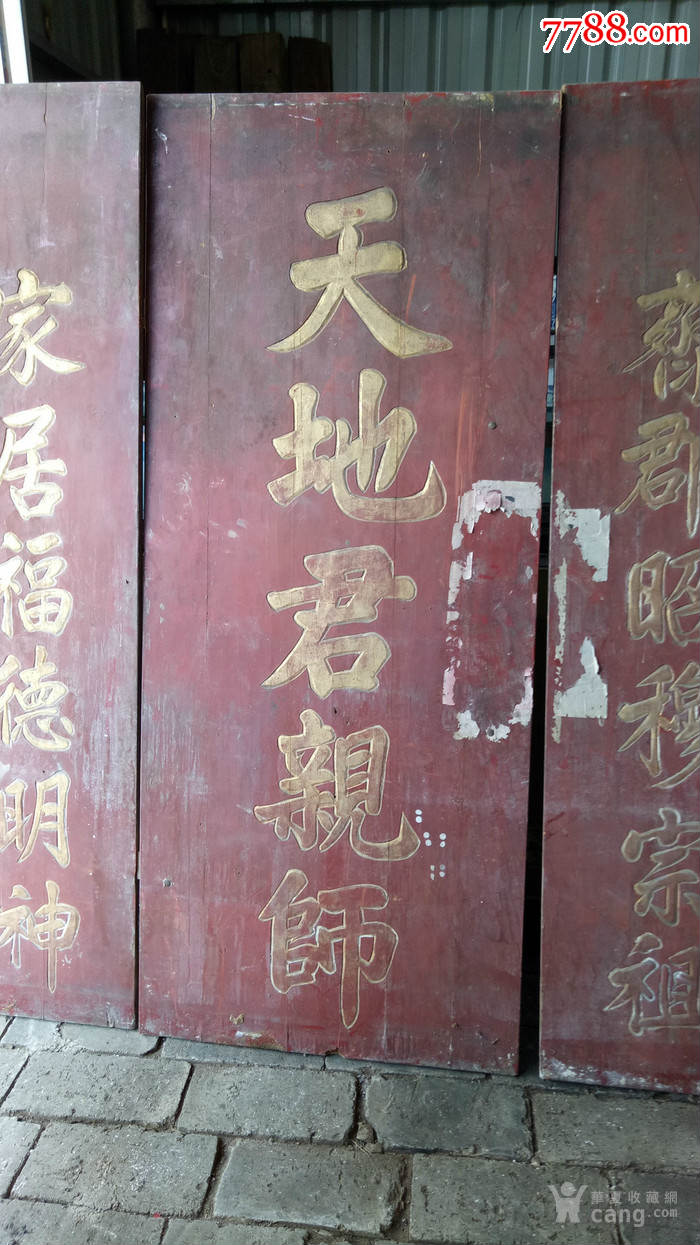 7788.com
齊郡昭穆宗祖
天地君親師
家居福德明神
華夏收藏網
cang.com